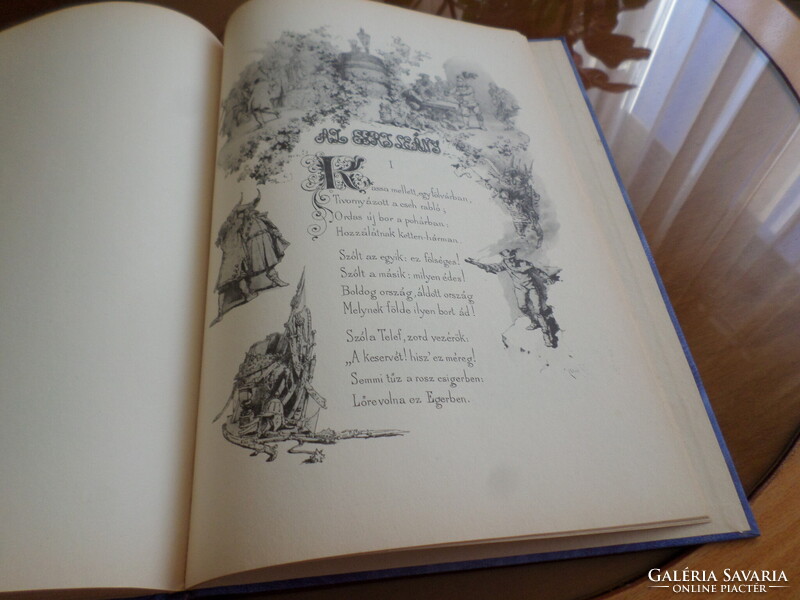 AZ EGRI LEÁNY
1
Kassa mellett, egy fólvárban,
Tivornyázott a cseh rabló;
Ordas új bor a pohárban:
Hozzálátnak ketten-hárman.
Szólt az egyik: ez fölséges!
Szólt a másik: milyen édes!
Boldog ország, áldott ország
Melynek földe ilyen bort ád!
Szóla Telef, zord vezérök:
„A keservét! hisz' ez méreg!
Semmi tűz a rosz csigerben:
Lőre volna ez Egerben.
GALÉRIA SAVARIA
ONLINE PIACTÉR